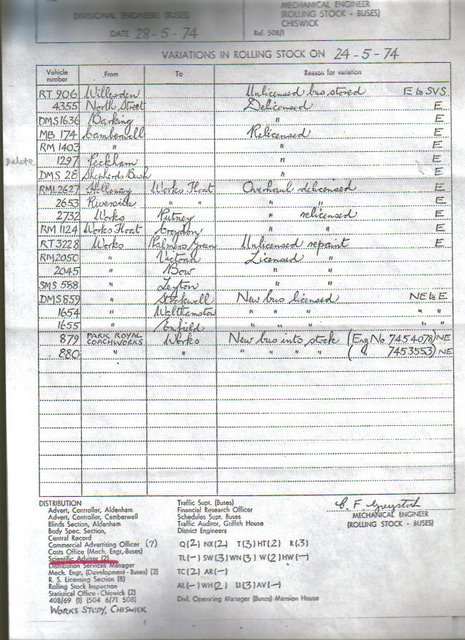 DIVISIONAL ENGINEERS (BUSES)
MECHANICAL ENGINEER
(ROLLING STOCK - BUSES)
CHISWICK
DATE 28-5-74 Ref. 508/1
VARIATIONS IN ROLLING STOCK ON 24-5-74
Vehicle number From To Reason for variation
RT 906 Willesden Unlicensed bus stored E to SVS
4355 North Street Delicensed E
DMS1636 Barking " E
MB 174 Camberwell Relicensed E
RM 1403 " " E
delete 1297 Peckham " E
DMS 28 Shepherds Bush " E
RML2627 Works Float Overhaul delicensed E
2653 Riverside " " " " E
2732 Works Putney " relicensed E
RM 1124 Works Float Croydon " " E
RT3228 Works Palmers Green Unlicensed repaint E
RM2050 " Victoria Licensed "
2045 " Bow " "
SMS 588 " Leyton " "
DMS859 " Stockwell New bus licensed NE to E
1654 " Walthamstow " " " " "
1655 " Enfield " " " " "
879 PARK ROYAL COACHWORKS Works New bus into stock (Eng No 7454078) NE
880 " " " " " " " ( " 7453553) NE
DISTRIBUTION
Advert, Controller, Aldenham
Advert, Controller, Camberwell
Blinds Section, Aldenham
Body Spec. Section,
Central Record
Commercial Advertising Officer (7)
Costs Office (Mech. Engr-Buses)
Scientific Adviser (2)
Distribution Services Manager
Mech. Engr, (Development - Buses) (2)
R. S. Licensing Section (8)
Rolling Stock Inspection
Statistical Office - Chiswick (2)
408/69 (1) (504 6/71 508)
WORKS STUDY, CHISWICK
Traffic Supt. (Buses)
Financial Research Officer
Schedules Supt. Buses
Traffic Auditor, Griffith House
District Engineers
Q(2) NX(2) T(3) HT(2) R(3)
TL(-) SW(3) WN(3) W(2) HW(-)
TC(2) AR(-)
AL(-) WH(2) U(3) AV(-)
Divl. Operating Manager (Buses) Mansion House
MECHANICAL ENGINEER
(ROLLING STOCK - BUSES)